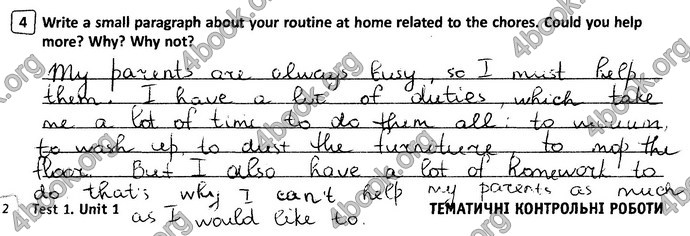 4 Write a small paragraph about your routine at home related to the chores. Could you help
more? Why? Why not?
My parents are always busy, so I must help
them. I have a lot of duties, which take
me a lot of time to do them all: to vacuum,
to wash up, to dust the furniture, to mop the
floor. But I also have a lot of homework to
do that's why I can't help my parents as much
as I would like to.
2 Test 1. Unit 1 ТЕМАТИЧНІ КОНТРОЛЬНІ РОБОТИ
4book.org